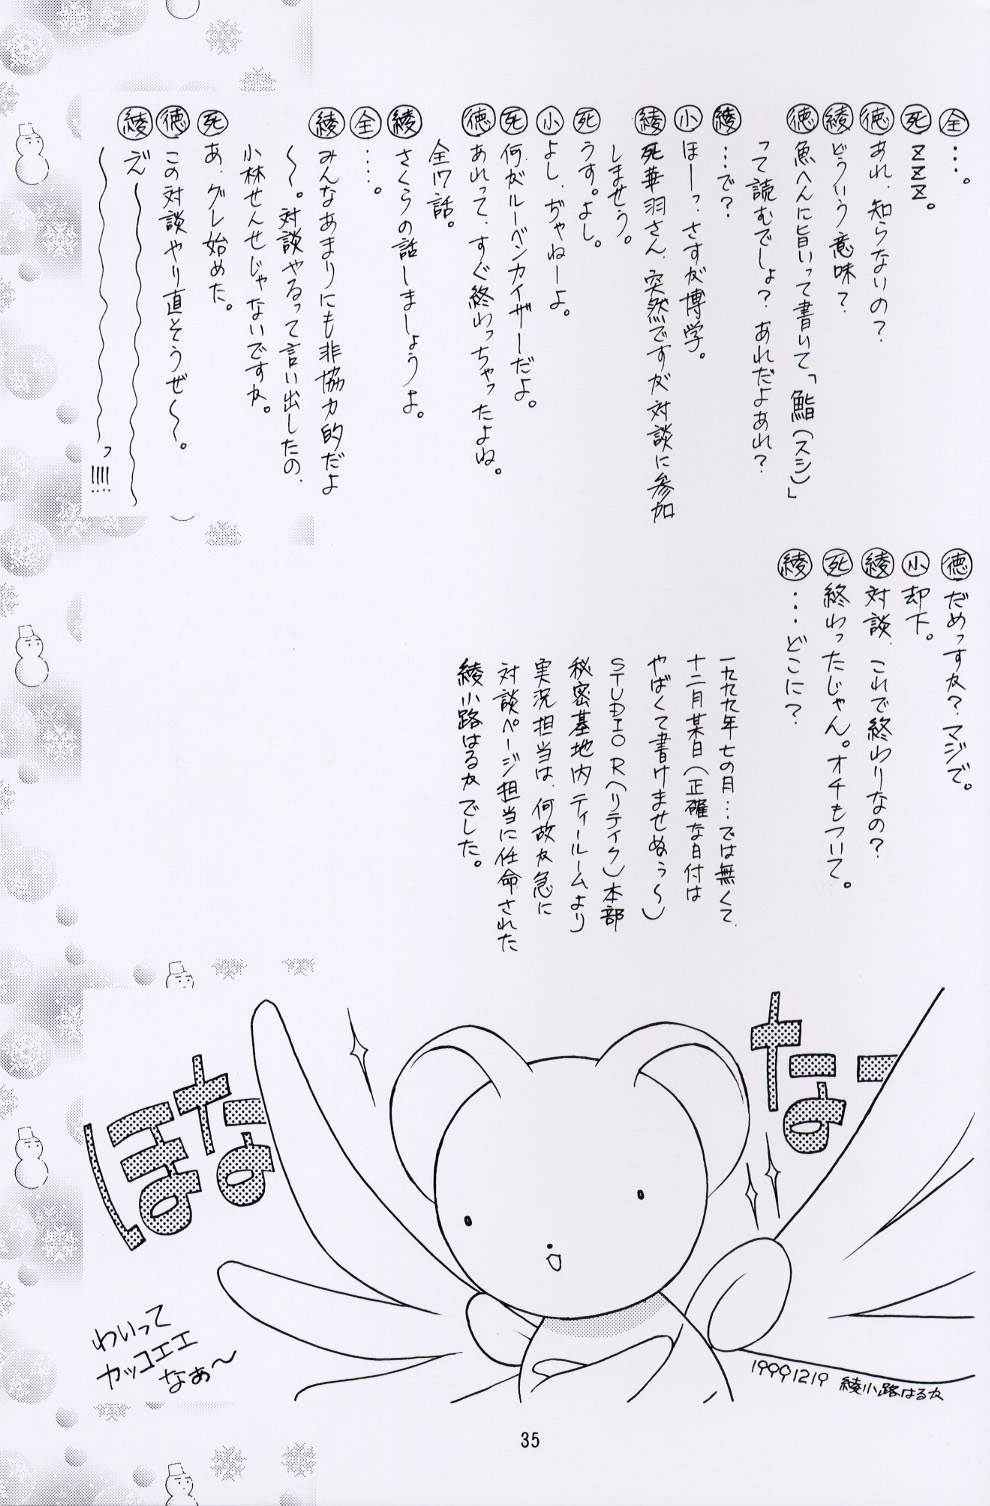 全…。
死ZZZ。
徳あれ、知らないの？
綾どういう意味？
徳魚へんに旨いって書いて「鮨（スシ）」
って読むでしょ？あれだよあれ？
綾…で？
小ほーっ、さすが博学。
綾死華羽さん、突然ですが対談に参加
しませう。
死うす。よし。
小よし、ぢゃねーよ。
死何がルーベンカイザーだよ。
徳あれって、すぐ終わっちゃったよね。
全17話。
綾さくらの話しましょうよ。
全…。
綾みんなあまりにも非協力的だよ
〜。対談やるって言い出したの、
小林せんせじゃないですか。
死あ、グレ始めた。
徳この対談やり直そうぜ〜。
綾
〜〜〜っ!!!!
徳だめっすか？マジで。
小却下。
綾対談、これで終わりなの？
死終わったじゃん。オチもついて。
綾…どこに？
一九九九年七の月…では無くて、
十二月某日（正確な日付は
やばくて書けませぬぅ〜）
STUDIO R（リテイク）本部
秘密基地内ティールームより
実況担当は、何故か急に
対談ページ担当に任命された
綾小路はるかでした。
なー
ほな
わいって
カッコエエ
なぁ〜
19991219 綾小路はるか
35